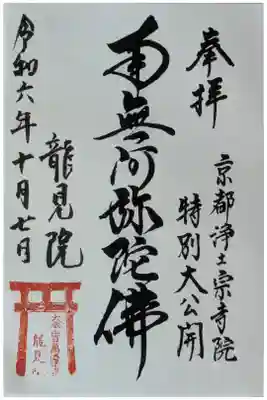 奉拝
京都浄土宗寺院
特別大公開
南無阿弥陀佛
龍見院
令和六年十月七日